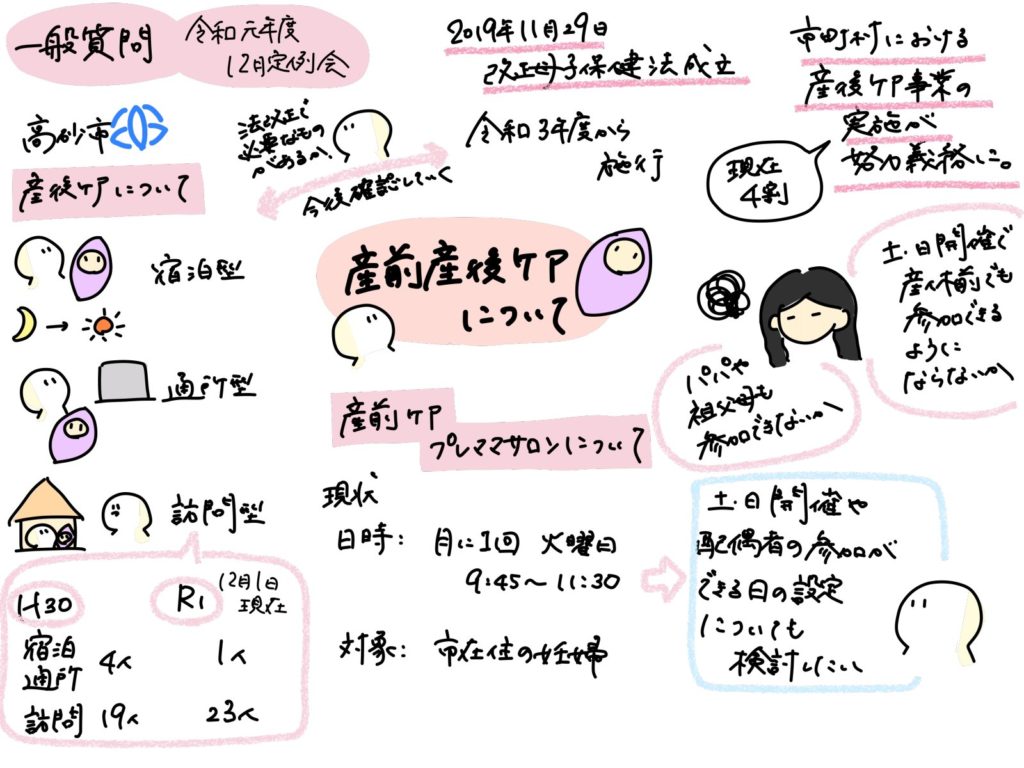 一般質問
令和元年度
12月定例会
2019年11月29日
改正母子保健法成立
令和3年度から
施行
市町村における
産後ケア事業の
実施が
努力義務に。
現在
4割
高砂市
法改正で
必要なもの
があるか
今後確認していく
産後ケアについて
宿泊型
通所型
訪問型
H30
R1
12月1日
現在
宿泊
通所
4人
1人
訪問
19人
23人
産前産後ケア
について
産前ケア
プレママサロンについて
現状
日時: 月に1回 火曜日
9:45〜11:30
対象: 市在住の妊婦
土・日開催で
産休前でも
参加できる
ように
ならないか
パパや
祖父母も
参加できないか
土・日開催や
配偶者の参加が
できる日の設定
についても
検討したい